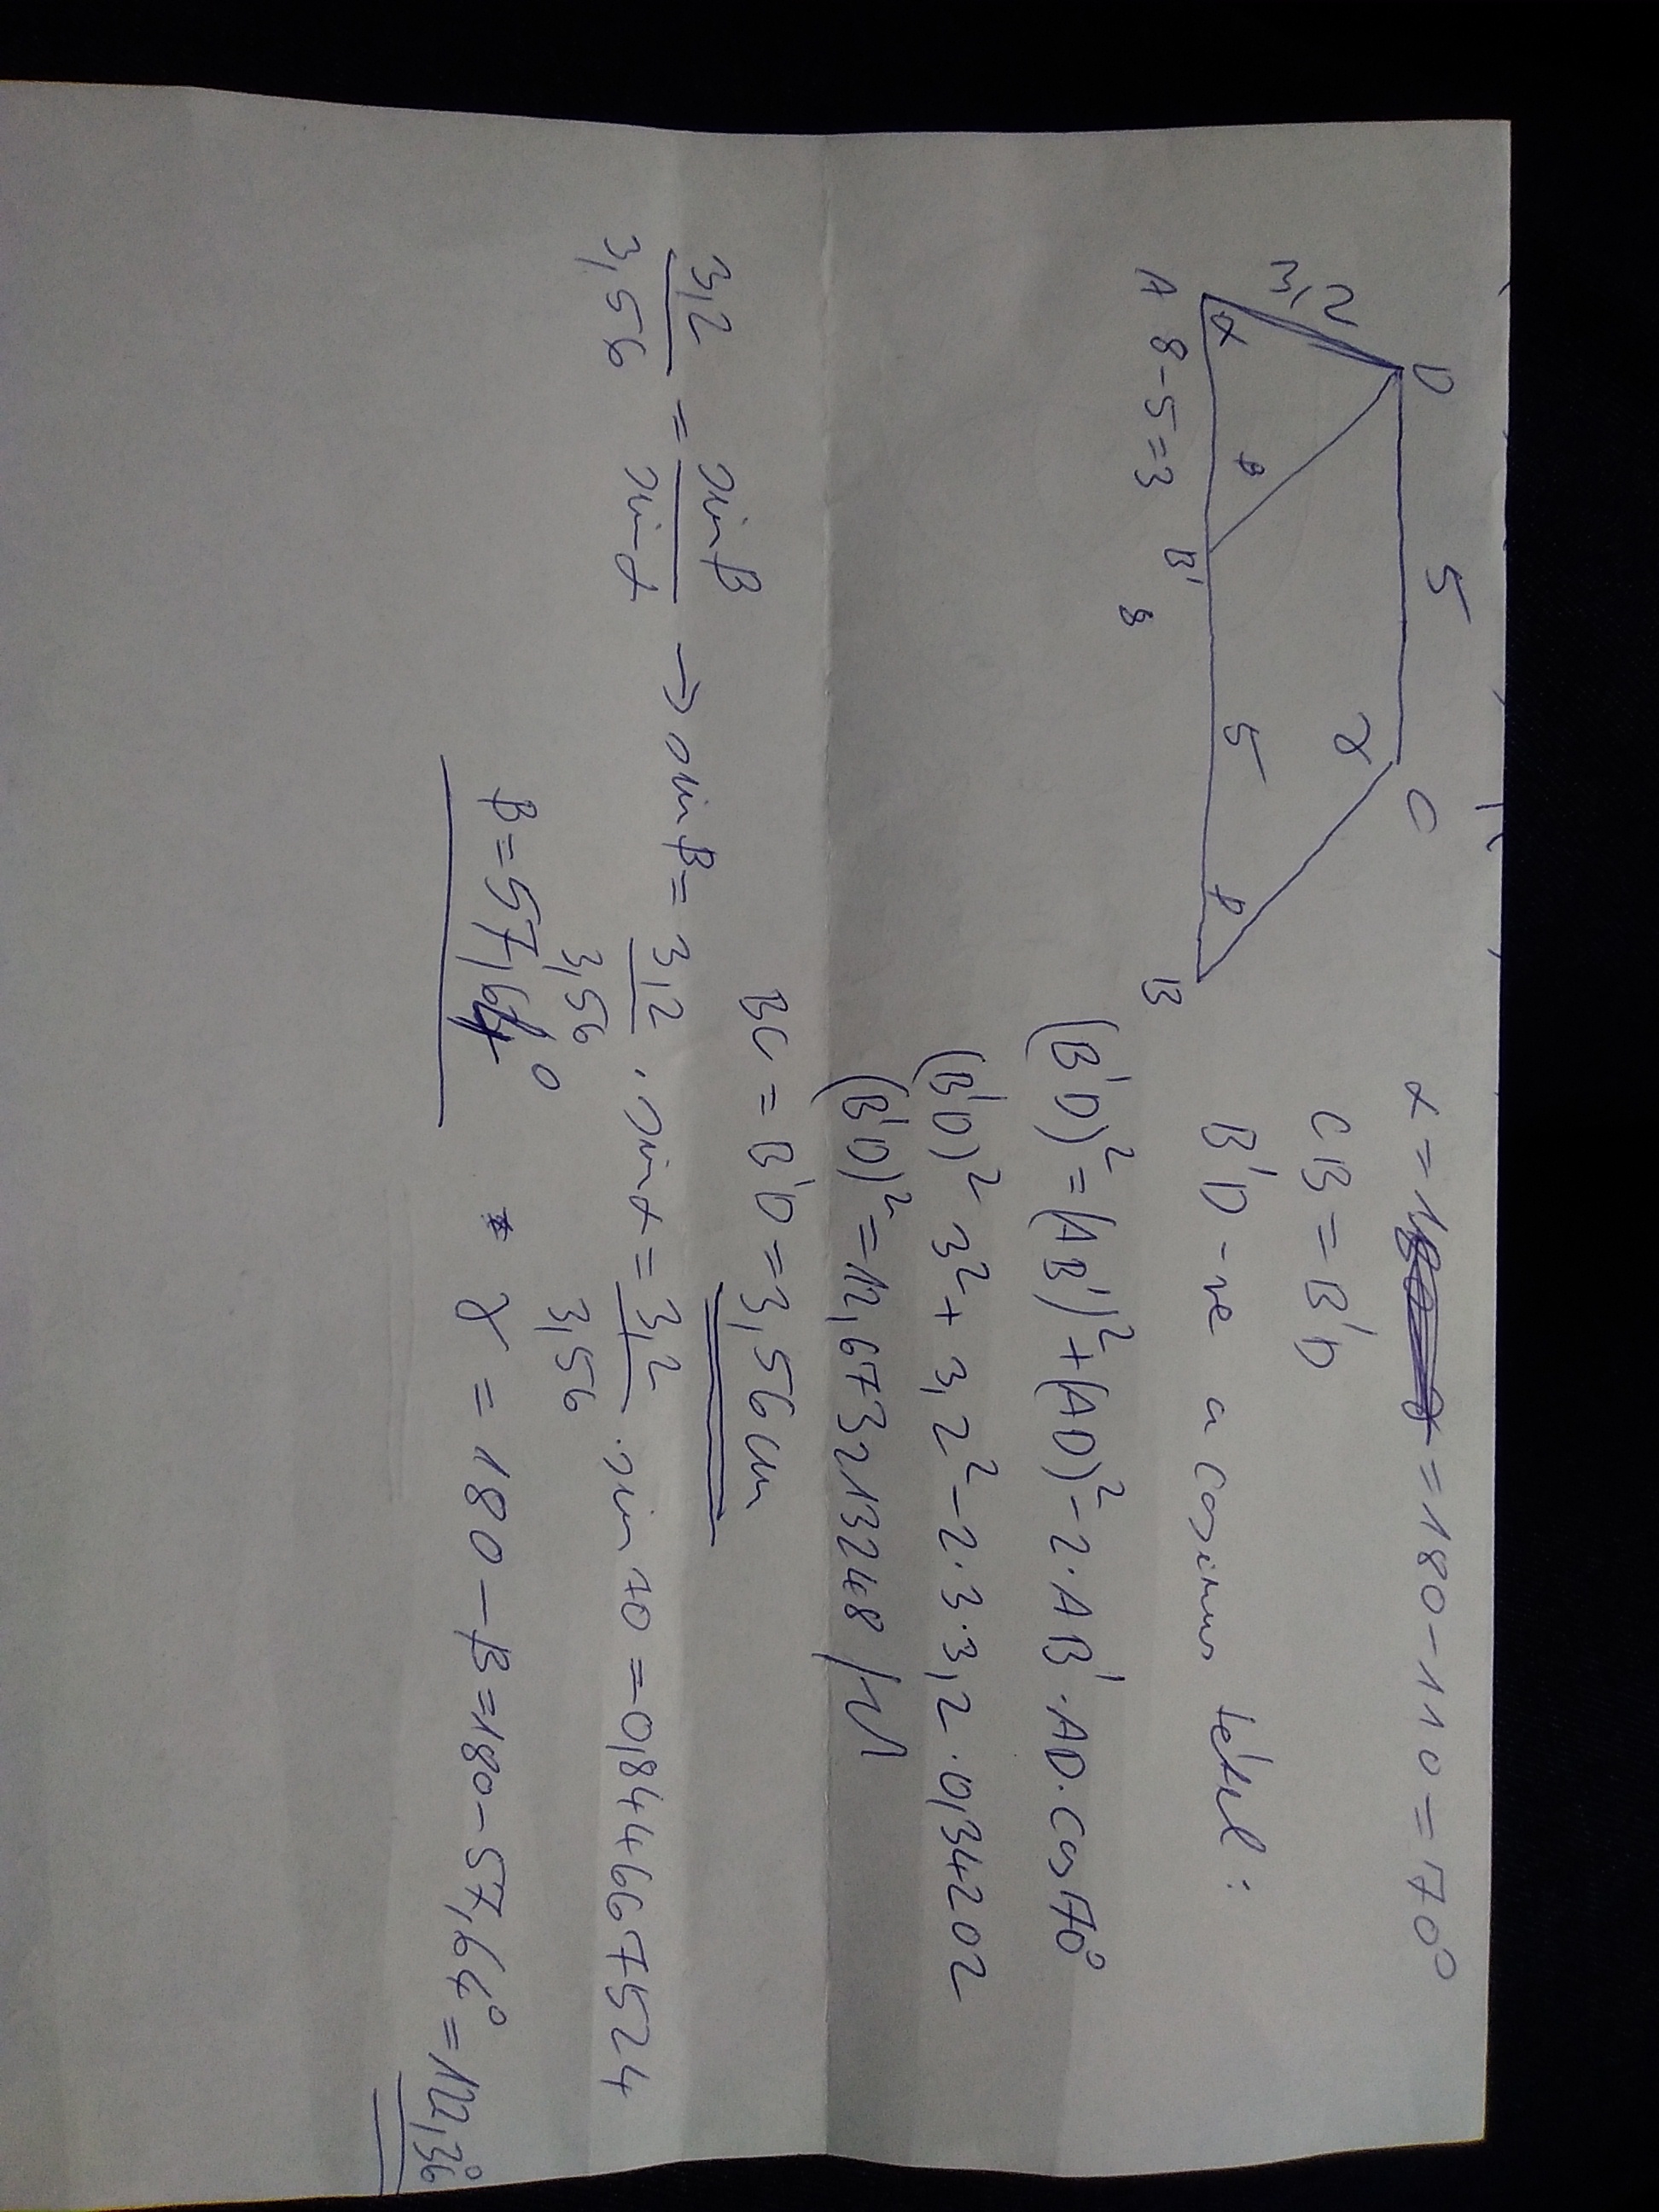 D 5 C
3,2 γ
α β 5 β
A 8-5=3 B' B
3
α = 180-110=70°
CB = B'D
B'D-re a cosinus tétel:
(B'D)² = (AB')² + (AD)² - 2·AB'·AD·cos70°
(B'D)² 3² + 3,2² - 2·3·3,2·0,34202
(B'D)² = 12,673213248 /√
BC = B'D = 3,56cm
3,2/3,56 = sinβ/sinα → sinβ = 3,2/3,56 · sinα = 3,2/3,56 · sin70 = 0,8446675 24
β = 57,64° γ = 180-β=180-57,64° = 122,36°